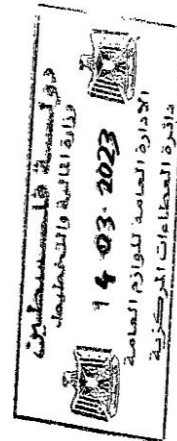 دولة فلسطين
وزارة المالية والتخطيط
14 -03- 2023
الادارة العامة للوازم العامة
دائرة العطاءات المركزية